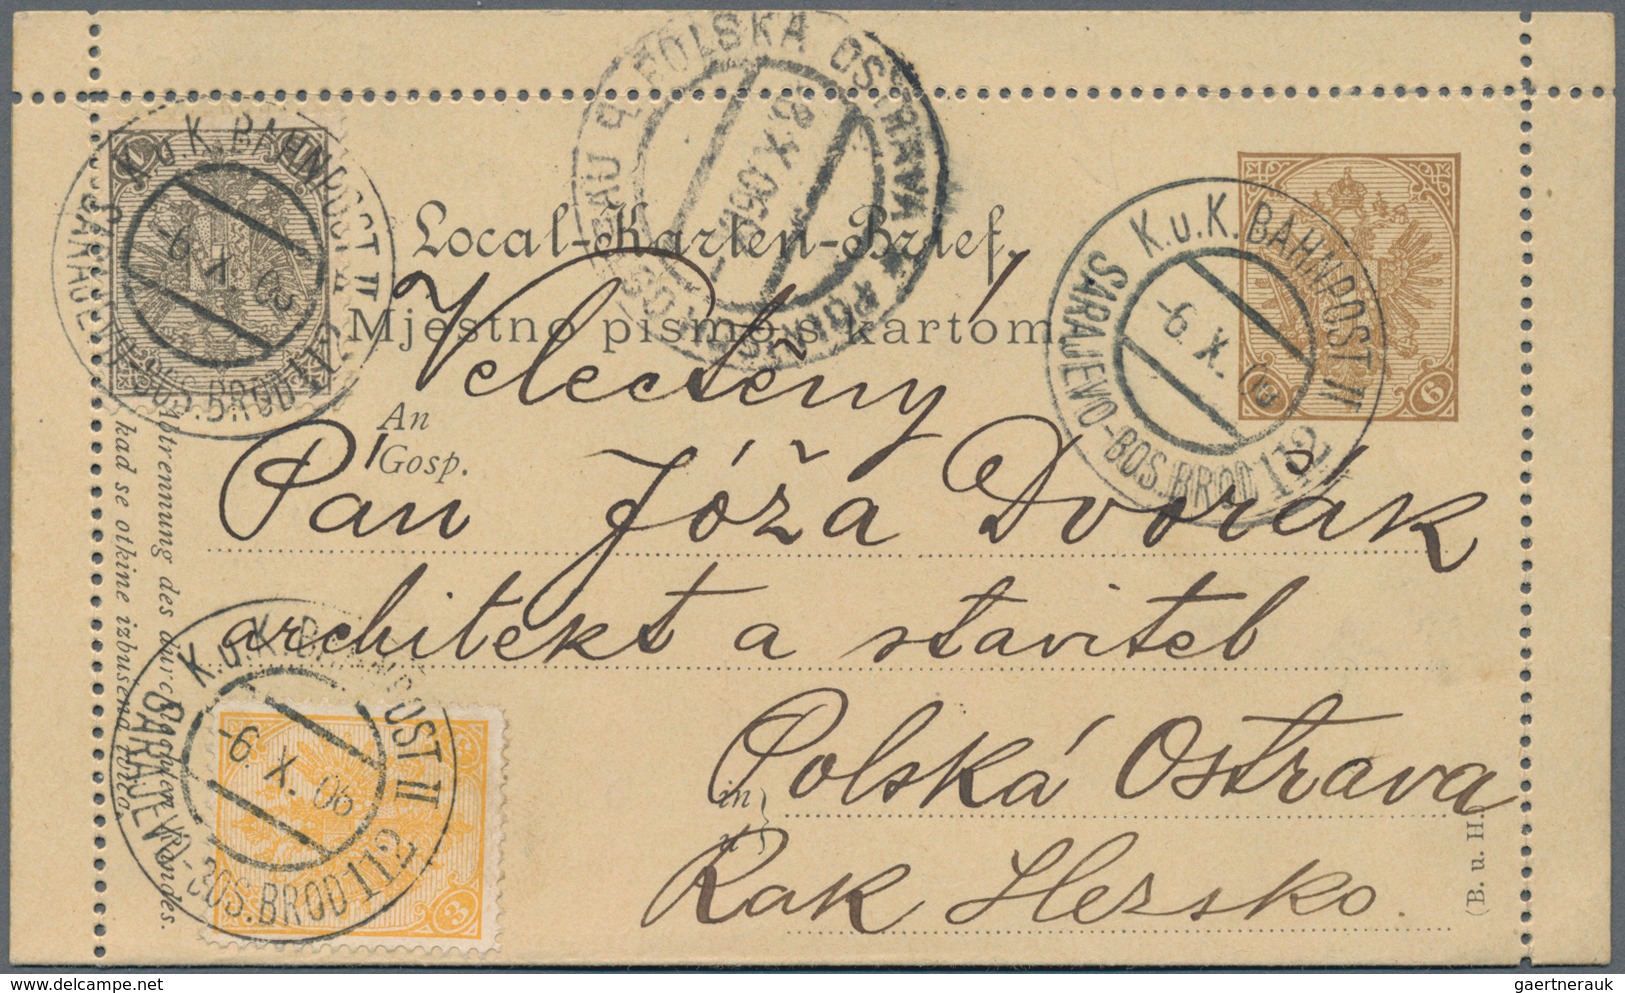 POLSKA OSTRAVA
8.X.06
K.u.K. BAHNPOST II
SARAJEVO-BOS.BROD 112
-6.X.06
K.u.K. BAHNPOST II
SARAJEVO-BOS.BROD 112
-6.X.06
6
Local-Karten-Brief.
Mjestno pismo s kartom
An
Gosp.
Velectěný
Pan Jóža Dvořák
architekt a stavitel
in
u
Polská Ostrava
Rak. Slezsko.
Abtrennung des durchlochten Randes.
kad se otkine izbušena ivica.
K.u.K. BAHNPOST II
SARAJEVO-BOS.BROD 112
-6.X.06
3
(B. u. H.)
gaertnerauk